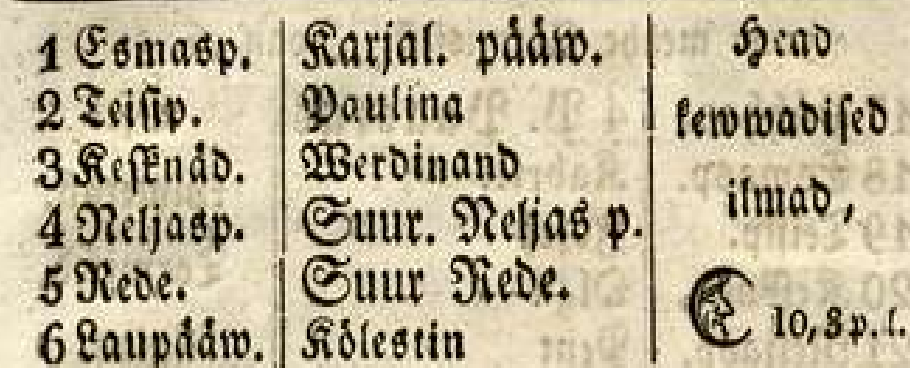 1 Esmasp. Karjal. pååw. Head
2 Teisip. Paulina kewwadised
3 Kesknäd. Werdinand ilmad,
4 Neljasp. Suur. Neljas p.
5 Rede. Suur Rede.
6 Laupääw. Kölestin 10, 8 p. l.